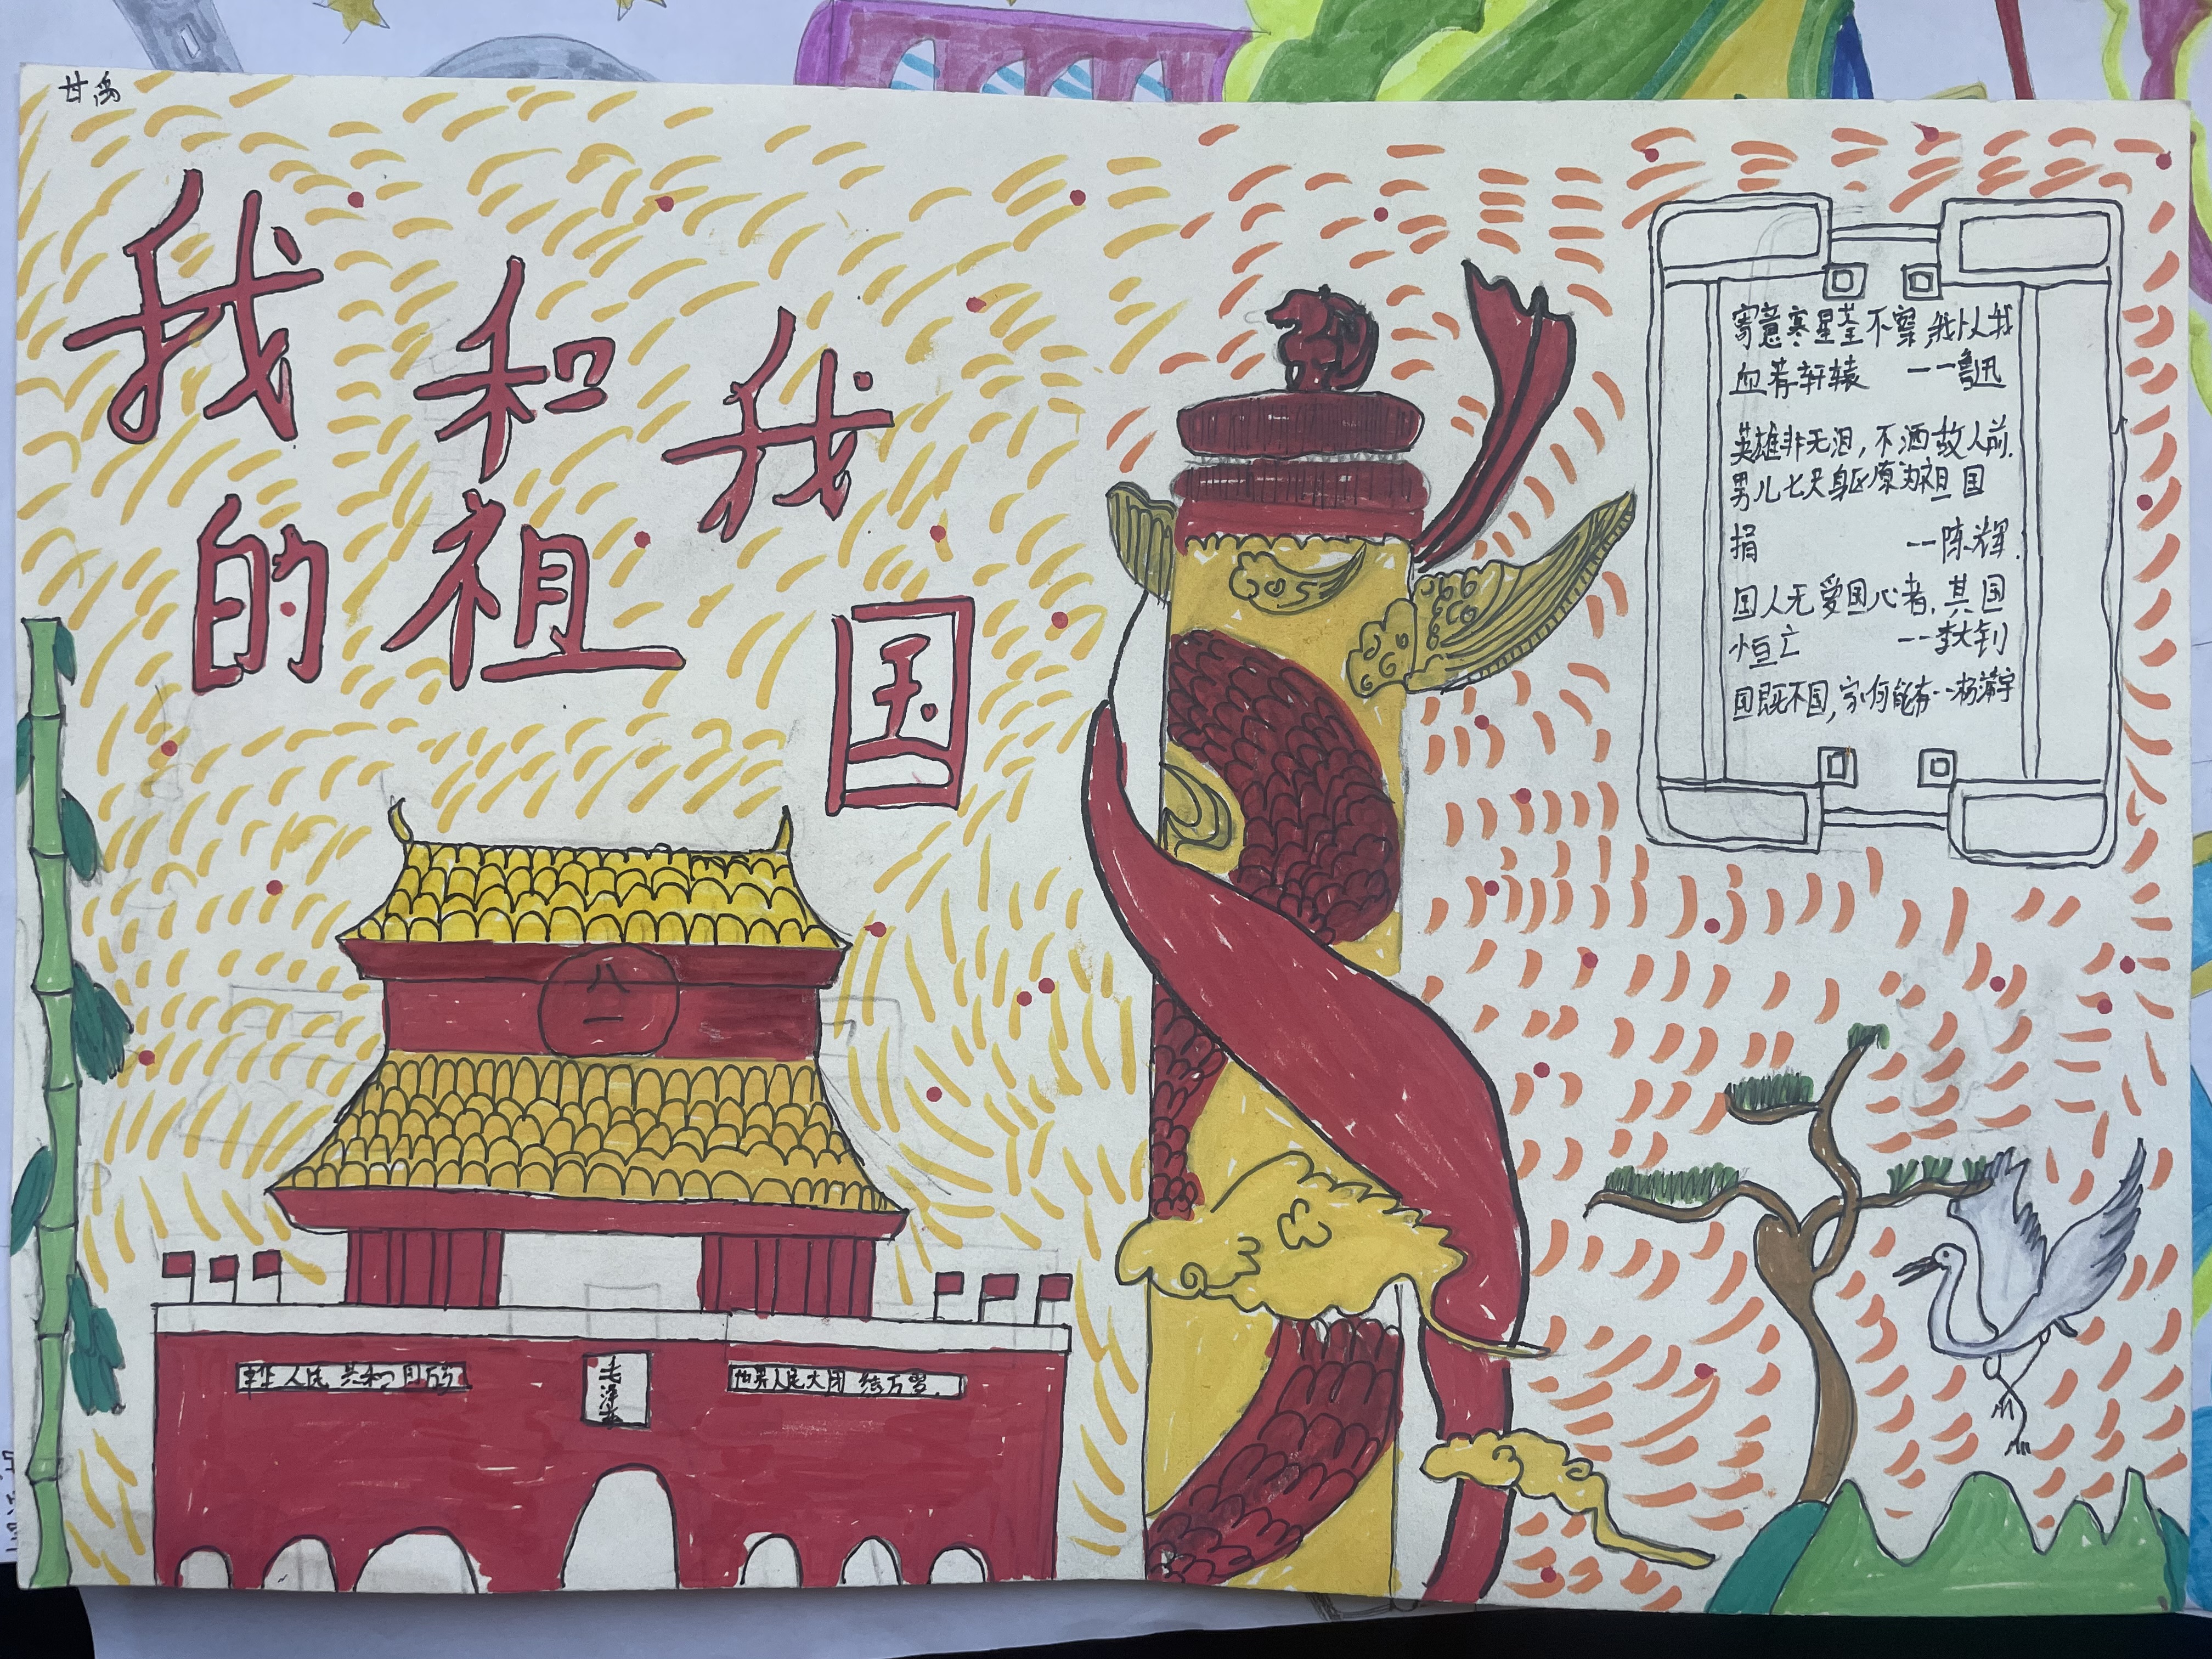 甘禹
我和我
的祖国
寄意寒星荃不察,我以我
血荐轩辕 --鲁迅
英雄非无泪,不洒敌人前.
男儿七尺身区原为祖国
捐 --陈辉.
国人无爱国心者,其国
恒亡 --李大钊
国既不国,家何能有--杨
华人民共和国万岁
毛泽东
世界人民大团结万岁.